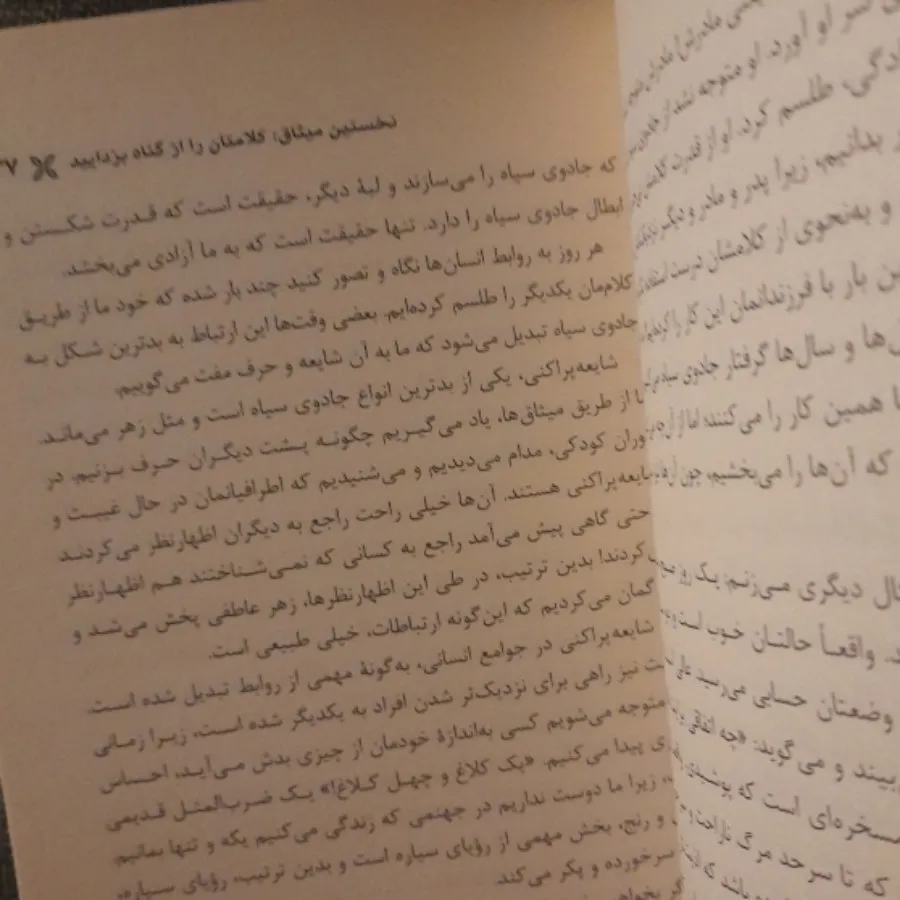 نخستین میثاق: کلامتان را از گناه بزدایید
که جادوی سیاه را می‌سازند و لبهٔ دیگر، حقیقت است که قدرت شکستن و
ابطال جادوی سیاه را دارد. تنها حقیقت است که به ما آزادی می‌بخشد.
هر روز به روابط انسان‌ها نگاه و تصور کنید چند بار شده که خود ما از طریق
کلام‌مان یکدیگر را طلسم کرده‌ایم. بعضی وقت‌ها این ارتباط به بدترین شکل به
جادوی سیاه تبدیل می‌شود که ما به آن شایعه و حرف مفت می‌گوییم.
شایعه‌پراکنی، یکی از بدترین انواع جادوی سیاه است و مثل زهر می‌ماند.
از طریق میثاق‌ها، یاد می‌گیریم چگونه پشت دیگران حرف بزنیم. در
کودکی، مدام می‌دیدیم و می‌شنیدیم که اطرافیانمان در حال غیبت و
هستند. آن‌ها خیلی راحت راجع به دیگران اظهارنظر می‌کردند
حتی گاهی پیش می‌آمد راجع به کسانی که نمی‌شناختند هم اظهارنظر
کردند! بدین ترتیب، در طی این اظهارنظرها، زهر عاطفی پخش می‌شد و
گمان می‌کردیم که این‌گونه ارتباطات، خیلی طبیعی است.
شایعه‌پراکنی در جوامع انسانی، به‌گونهٔ مهمی از روابط تبدیل شده است.
نیز راهی برای نزدیک‌تر شدن افراد به یکدیگر شده است، زیرا زمانی
متوجه می‌شویم کسی به‌اندازهٔ خودمان از چیزی بدش می‌آید، احساس
پیدا می‌کنیم. «یک کلاغ و چهل کلاغ!» یک ضرب‌المثل قدیمی
زیرا ما دوست نداریم در جهنمی که زندگی می‌کنیم یکه و تنها بمانیم.
و رنج، بخش مهمی از رؤیای سیاره است و بدین ترتیب، رؤیای سیاره،
سرخورده و پکر می‌کند.
سر او آورد. او متوجه نشد از
طلسم کرد. او از قدرت
بدانیم، زیرا پدر و مادر و دیگر
و به‌نحوی از کلامشان درست
بار با فرزندانمان این کار را
و سال‌ها گرفتار جادوی سیاه
همین کار را می‌کنند اما از
که آن‌ها را می‌بخشیم، چون
دیگری می‌زنم: یک روز
واقعاً حالتان خوب است و
وضعتان حسابی می‌رسید
و می‌گوید: «چه اتفاقی
مسخره‌ای است که پوشیدی
که تا سرحد مرگ ناراحت و
باشد که